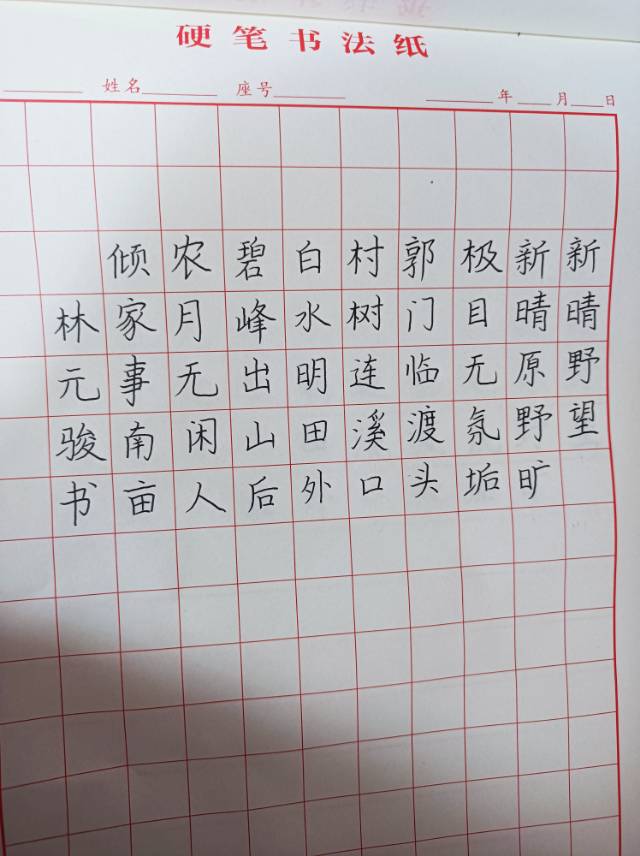 硬笔书法纸
姓名 座号 年 月 日
新晴野望
新晴原野旷
极目无氛垢
郭门临渡头
村树连溪口
白水明田外
碧峰出山后
农月无闲人
倾家事南亩
林元骏书